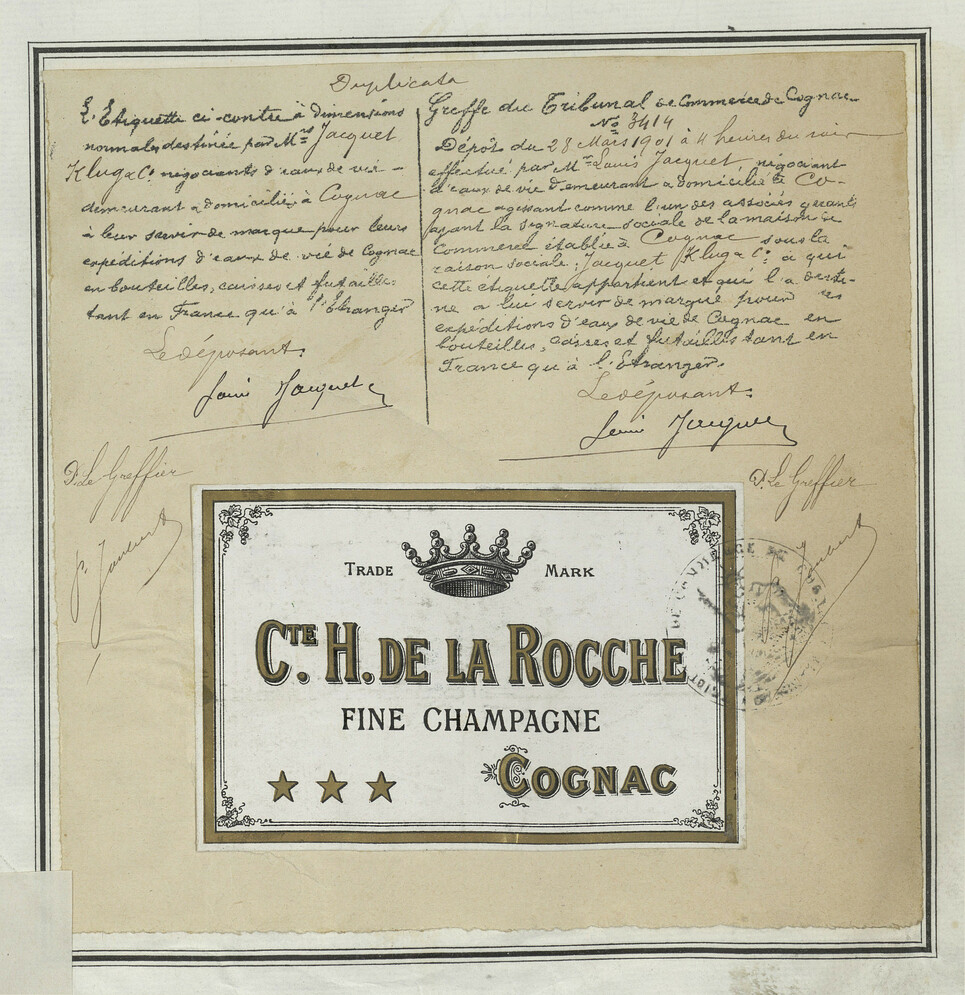 Duplicata
L'Etiquette ci-contre à dimensions
normales destinée par Mrs Jacquet
Klug & Cie négociants d'eaux de vie -
demeurant & domiciliés à Cognac
à leur servir de marque pour leurs
expéditions d'eaux de vie de Cognac
en bouteilles, caisses et futailles
tant en France qu'à l'Etranger
Le déposant:
Louis Jacquet
D. Le Greffier
Greffe du Tribunal de Commerce de Cognac
No 3414
Dépôt du 28 Mars 1901 à 4 heures du soir
effectué par Mr Louis Jacquet, négociant
d'eaux de vie demeurant & domicilié à Co-
gnac agissant comme l'un des associés gérants
ayant la signature sociale de la maison de
Commerce établie à Cognac sous la
raison sociale: Jacquet Klug & Cie à qui
cette étiquette appartient et qui l'a desti-
née à lui servir de marque pour ses
expéditions d'eaux de vie de Cognac en
bouteilles, caisses et futailles tant en
France qu'à l'Etranger.
Le déposant:
Louis Jacquet
D. Le Greffier
TRADE MARK
CTE H. DE LA ROCCHE
FINE CHAMPAGNE
★ ★ ★ COGNAC